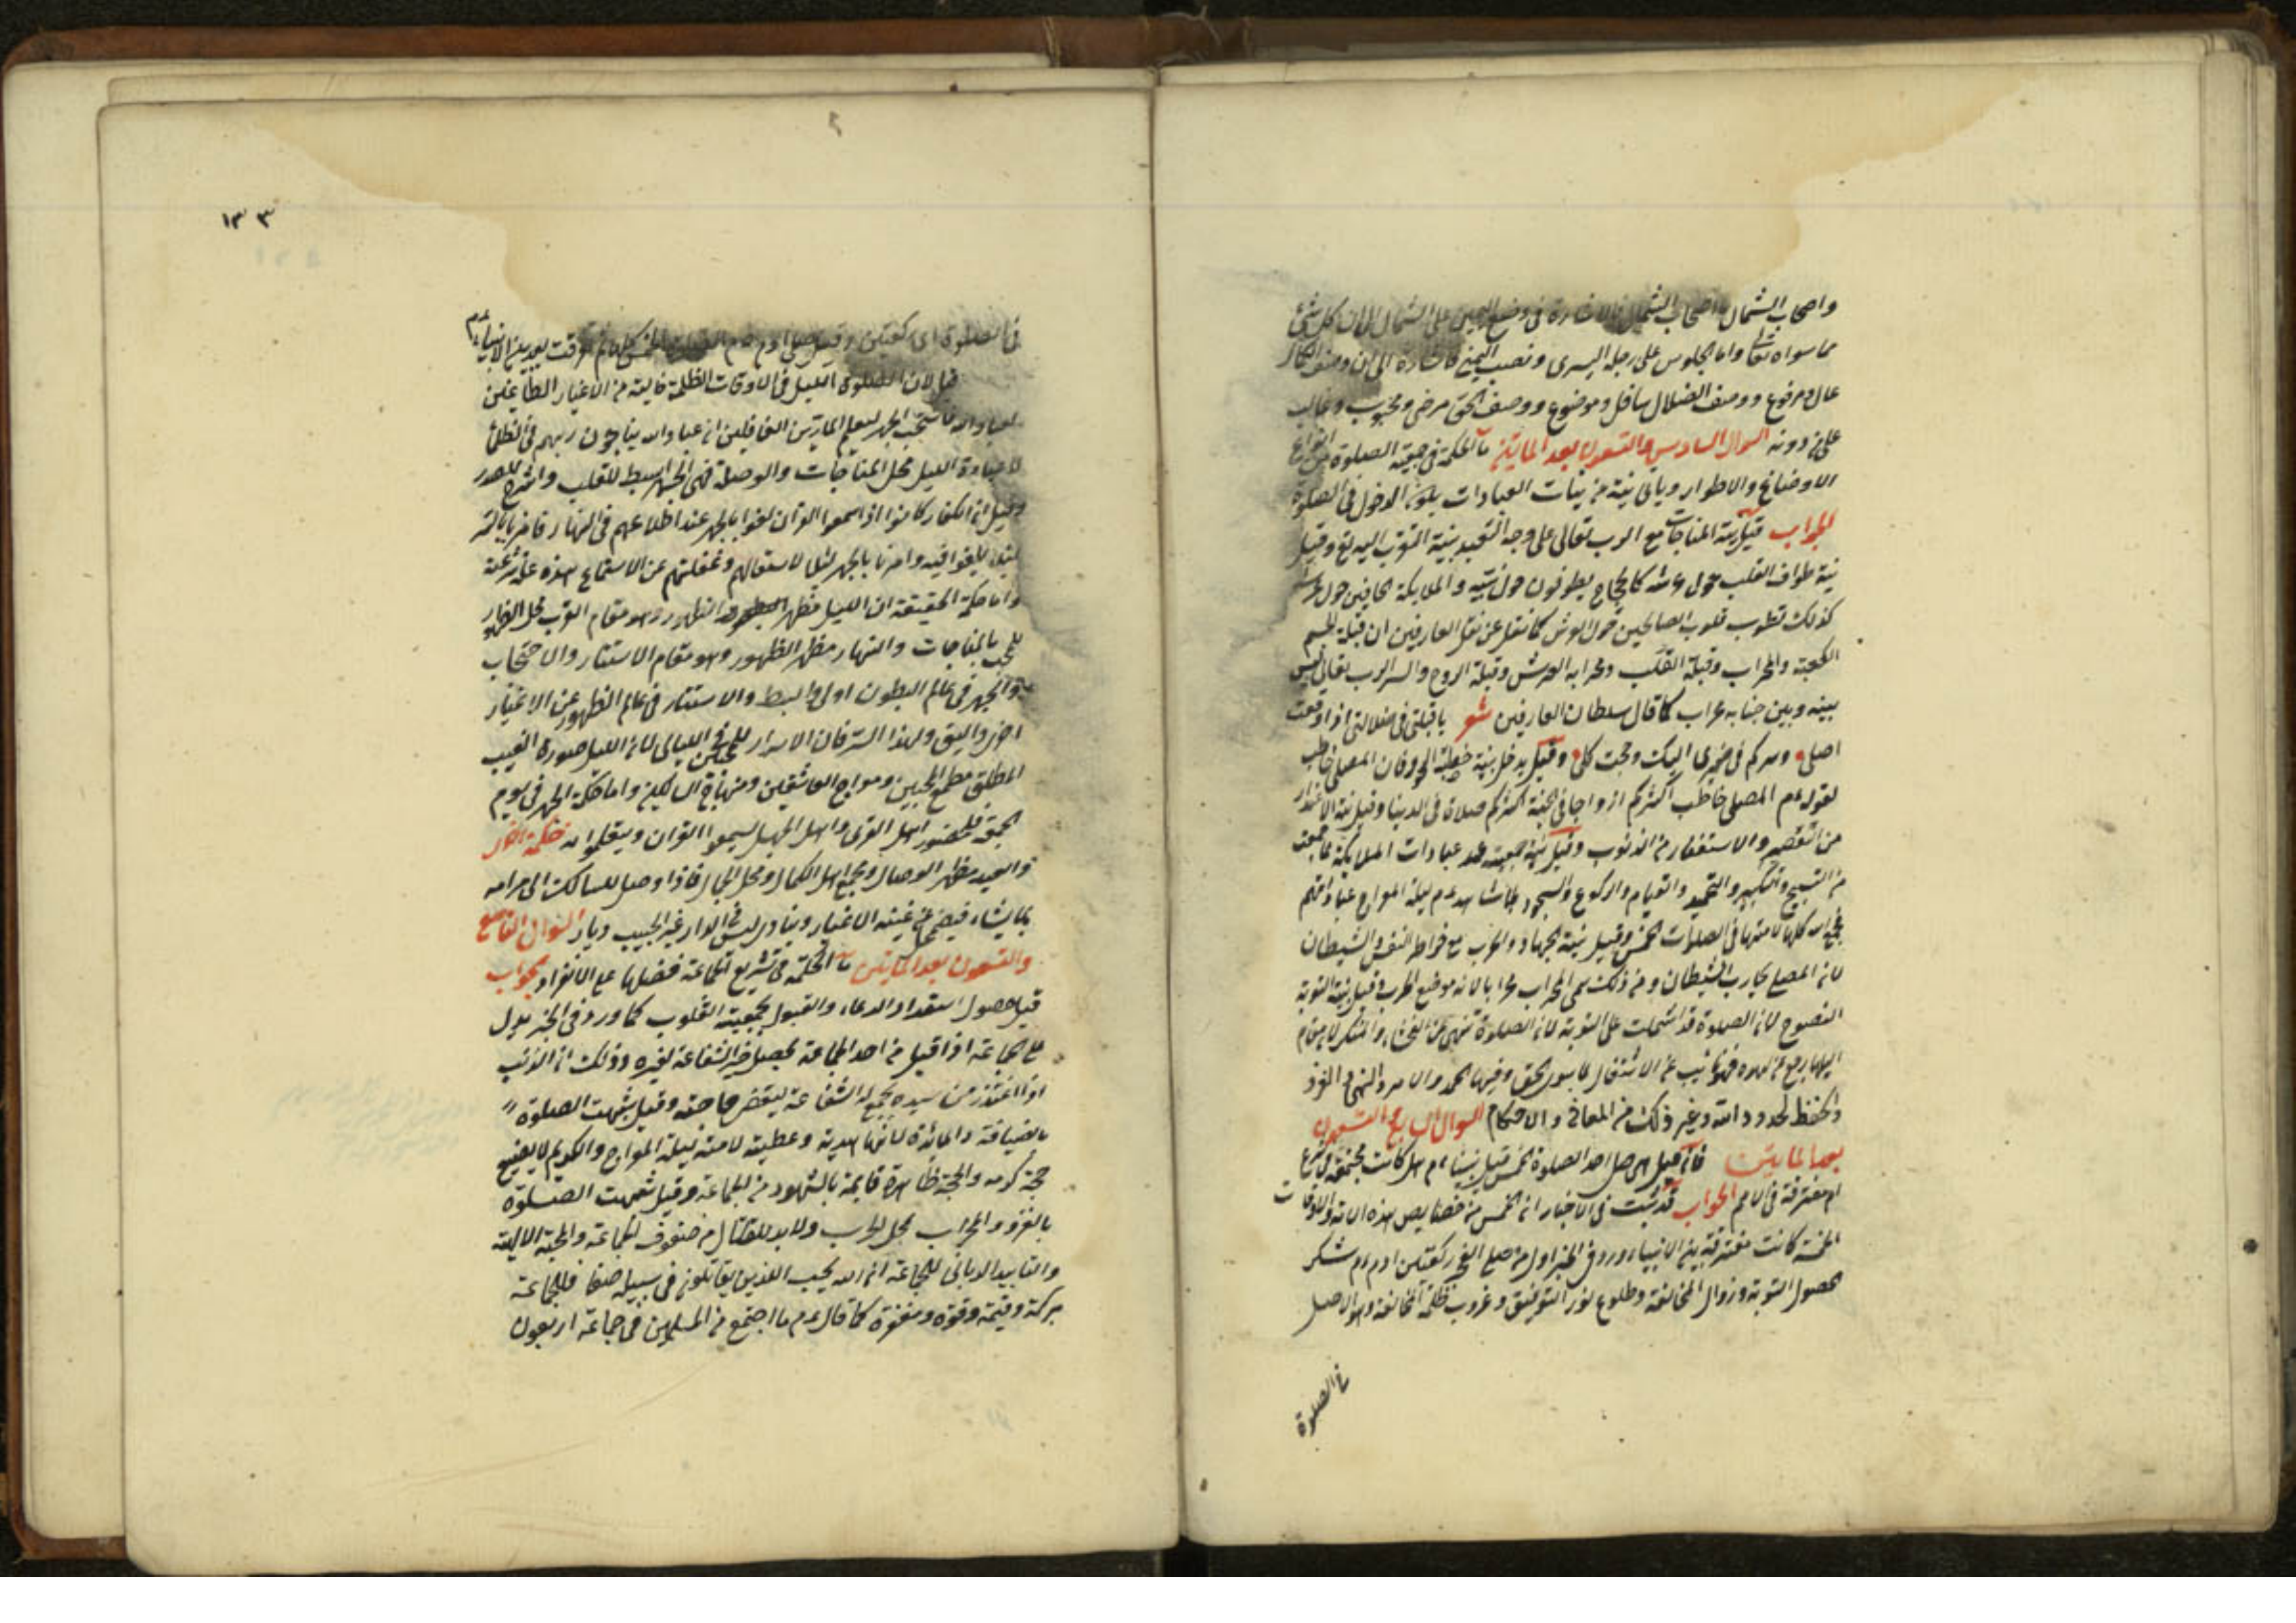 واصحاب الشمال اصحاب الشمال فالاشارة في وضع اليمين على الشمال الى ان كل شئ
مما سواه تعالى واما الجلوس على رجله اليسرى ونصب اليمنى فاشارة الى ان وصف الكمال
عال ومرفوع ووصف الضلال سافل وموضوع ووصف الحق مرضى ومحبوب وغالب
على من دونه السوال السادس والتسعون بعد المايتين ما الحكمة في جمعية الصلوة من انواع
الاوضاع والاطوار وباى نية من نيات العبادات يلزم الدخول في الصلوة
الجواب قيل نية المناجات مع الرب تعالى على وجه التعبد بنية التقرب اليه تع وقيل
نية طواف القلب حول عرشه كالحجاج يطوفون حول بيته والملايكة الحافين حول عرشه
كذلك تطوف قلوب الصالحين حول العرش كما نقل عن نقل العارفين ان قبلة الجسم
الكعبة والمحراب وقبلة القلب ومحرابه العرش وقبلة الروح والسر الرب تعالى ليس
بينه وبين جنابه محراب كما قال سلطان العارفين شعر ياقبلتى في صلاتى اذا وقعت
اصلى وسركم في ضميرى اليك وجهت كلى وقيل يدخل بنية خطبة الحور فان المصلى خاطب
لقوله عم المصلى خاطب اكثركم ازواجا في الجنة اكثركم صلاة في الدنيا وقيل نية الاعتذار
من التقصير والاستغفار من الذنوب وقيل نية جمعية عند عبادات الملايكة لما جمعت
من التسبيح والتكبير والتحميد والقيام والركوع والسجود لما شاهد عم ليلة المعراج عباداتهم
فجمع الله كلها لامته في الصلوات الخمس وقيل بنية الجهاد والحرب مع خواطر النفس والشيطان
لان المصلى يحارب الشيطان ومن ذلك سمى المحراب محرابا لانه موضع الحرب وقيل بنية التوبة
النصوح لان الصلوة قد اشتملت على التوبة لان الصلوة تنهى عن الفحشاء والمنكر لان من قام
اليها رجع عن لهوه فهو تايب عن الاشتغال بما سوى الحق وفيها الحمد والامر والنهى
والحفظ لحدود الله وغير ذلك من المعانى والاحكام السوال السابع والتسعون
بعد المايتين فان قيل هل صلى احد الصلوة الخمس قبل نبينا عم ام هل كانت مجتمعة
ام مفترقة في الامم الجواب قد ثبت في الاخبار ان الخمس من خصايص هذه الامة والاوقات
الخمسة كانت مفترقة بين الانبياء ورد في الخبر اول من صلى الفجر ركعتين ادم عم شكر
لحصول التوبة وزوال المخالفة وطلوع نور التوفيق وغروب ظلمة المخالفة وهو الاصل
في الصلوة
١٣٣
في الصلوة اى ركعتين وقيل صلى ادم عم الصلوات الخمس كلها ثم تفرقت بعده بين الانبياء عم
قيل لان الصلوة الليل في الاوقات الظلمة خالية من الاغيار الطاعنين
لعباد الله فاستحب الجهر ليعلم المارين الغافلين ان عباد الله يناجون ربهم في الظلمة
لان عبادة الليل محل المناجات والوصلة فهى الجهر ابسط للقلب واشرح للصدر
وقيل ان الكفار كانوا اذا سمعوا القران لغوا بالجهر عند اطلاعهم في النهار فامر بالستر
لئلا يلغوا فيه وامرنا بالجهر ليلا لاشتغالهم وغفلتهم عن الاستماع هذه علة شرعية
واما حكمة الحقيقة ان الليل مظهر الظهور وهو مقام القرب محل الظهور
للمحب بالمناجات والنهار مظهر الظهور وهو مقام الاستتار والاحتجاب
والجهر في عالم البطون اولى وابسط والاستتار في عالم الظهور عن الاغيار
احرى واليق ولهذا السر كان الاسرار للمحبين في الليالى لان الليل صورة الغيب
المطلق مطمع المحبين ومعراج العاشقين ومنهاج السالكين واما حكمة الجهر في يوم
الجمعة فلحضور اهل القرى واهل الجهل ليسمعوا القران ويتعلموا منه حكمة اخرى
والعيد مظهر الوصال ومجمع اهل الكمال ومحل الجمال فاذا وصل السالك الى مرامه
بما يشاء فيضمحل عن عينه الاغيار وينادى ليس في الدار غير الحبيب ديار السوال التاسع
والتسعون بعد المايتين ما الحكمة في تشريع الجماعة فضلها على الانفراد الجواب
قيل حصول استعداد الدعاء والقبول بجمعية القلوب كما ورد في الخبر يدل
على الجماعة اذا قبل من احد الجماعة يحصل خير الشفاعة لغيره وذلك ان المذنب
اذا اعتذر من سيده يجمع له الشفاعة ليقضى حاجته وقيل شبهت الصلوة
بالضيافة والمائدة لانها هدية وعطية لامته ليلة المعراج والكريم لا يضيع
حجة كرمه والحجة ظاهرة قايمة بالشهود من الجماعة وقيل شبهت الصلوة
بالغزو والمحراب محل الحرب ولابد للقتال من صفوف الجماعة والمحبة الالهية
والتاييد الربانى للجماعة ان الله يحب الذين يقاتلون في سبيله صفا فللجماعة
بركة وقيمة وقوة ومغفرة كما قال عم ما اجتمع من المسلمين في جماعة اربعون